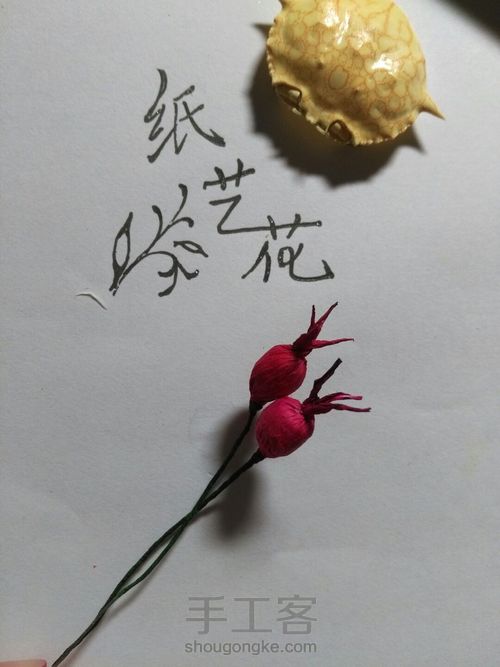 纸
艺
花
手工客
shougongke.com